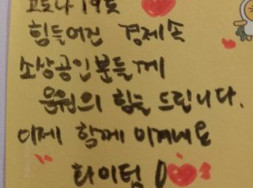 코로나 19로
힘들어진 경제속
소상공인분들께
응원의 힘을 드립니다.
이제 함께 이겨내요
화이팅